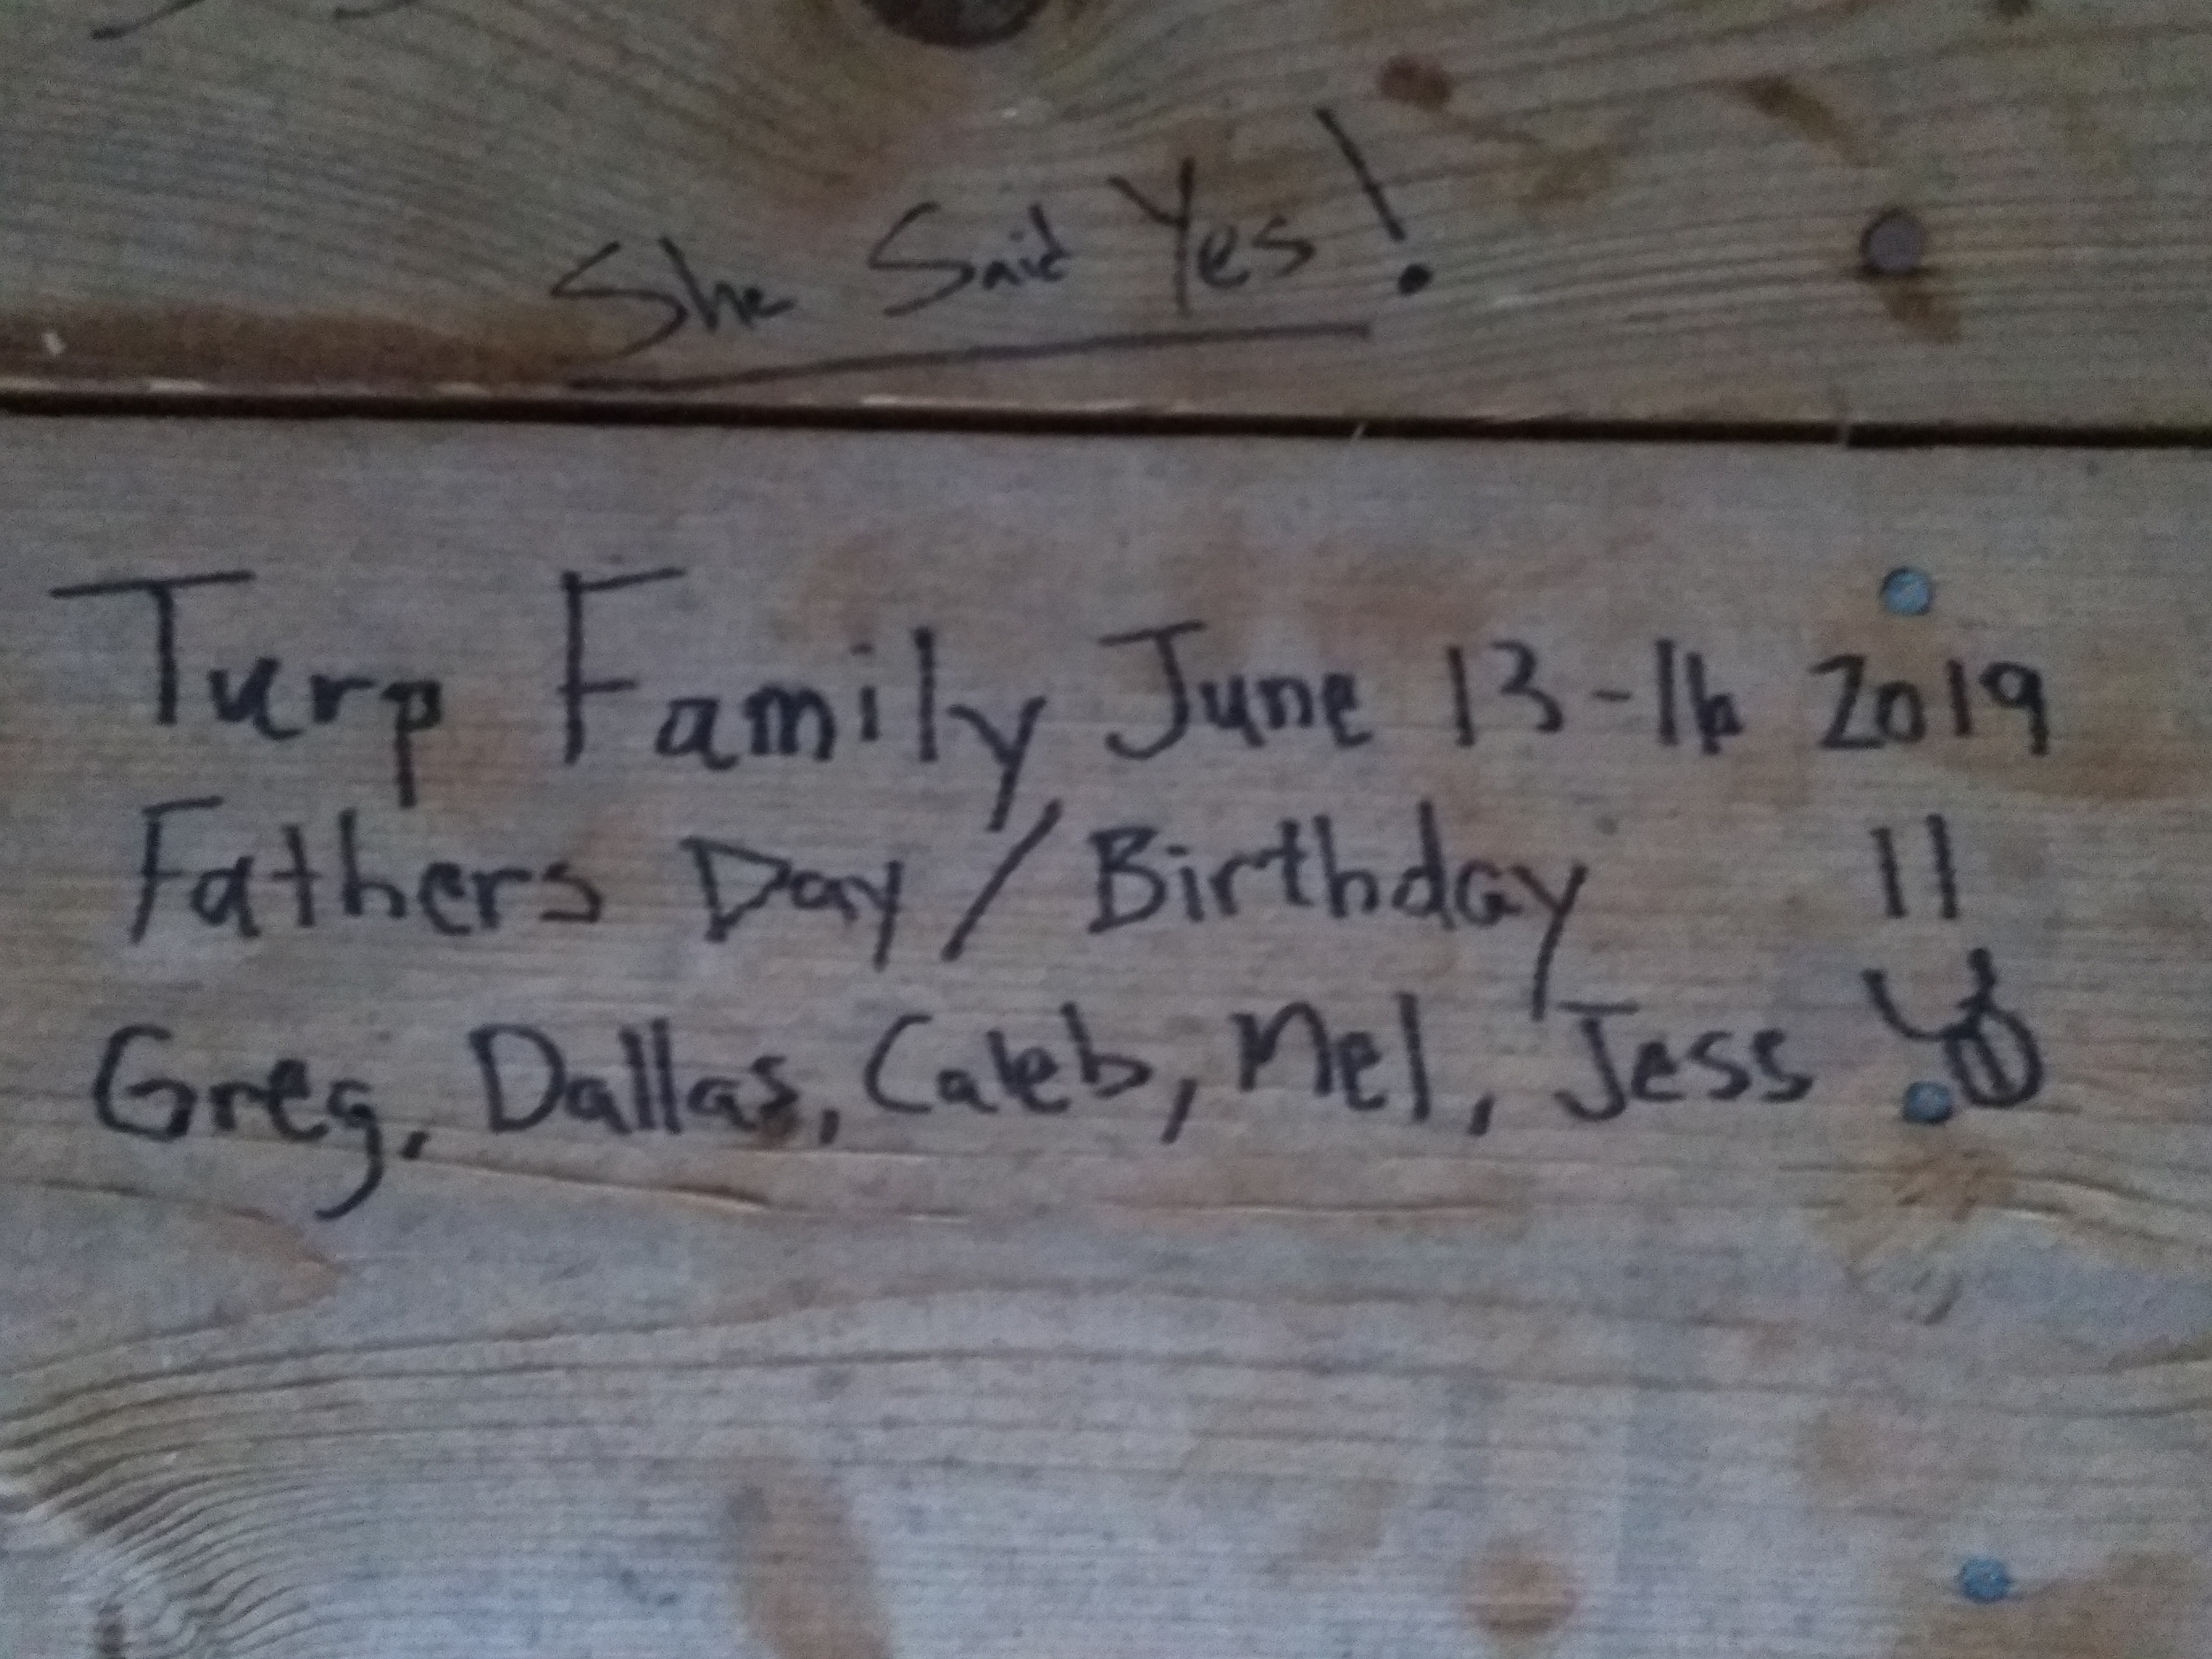 She Said Yes!
Turp Family June 13-16 2019
Fathers Day / Birthday
Greg, Dallas, Caleb, Mel, Jess